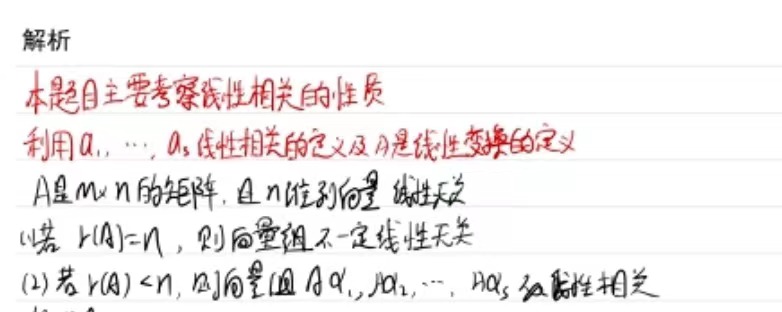 解析
本题目主要考察线性相关的性质
利用a₁, …, aₛ线性相关的定义及A是线性变换的定义
A是m×n的矩阵, 且n维列向量 线性无关
(1)若 r(A)=n, 则向量组不一定线性无关
(2)若r(A)<n, 则向量组Aα₁, Aα₂, …, Aαₛ 线性相关